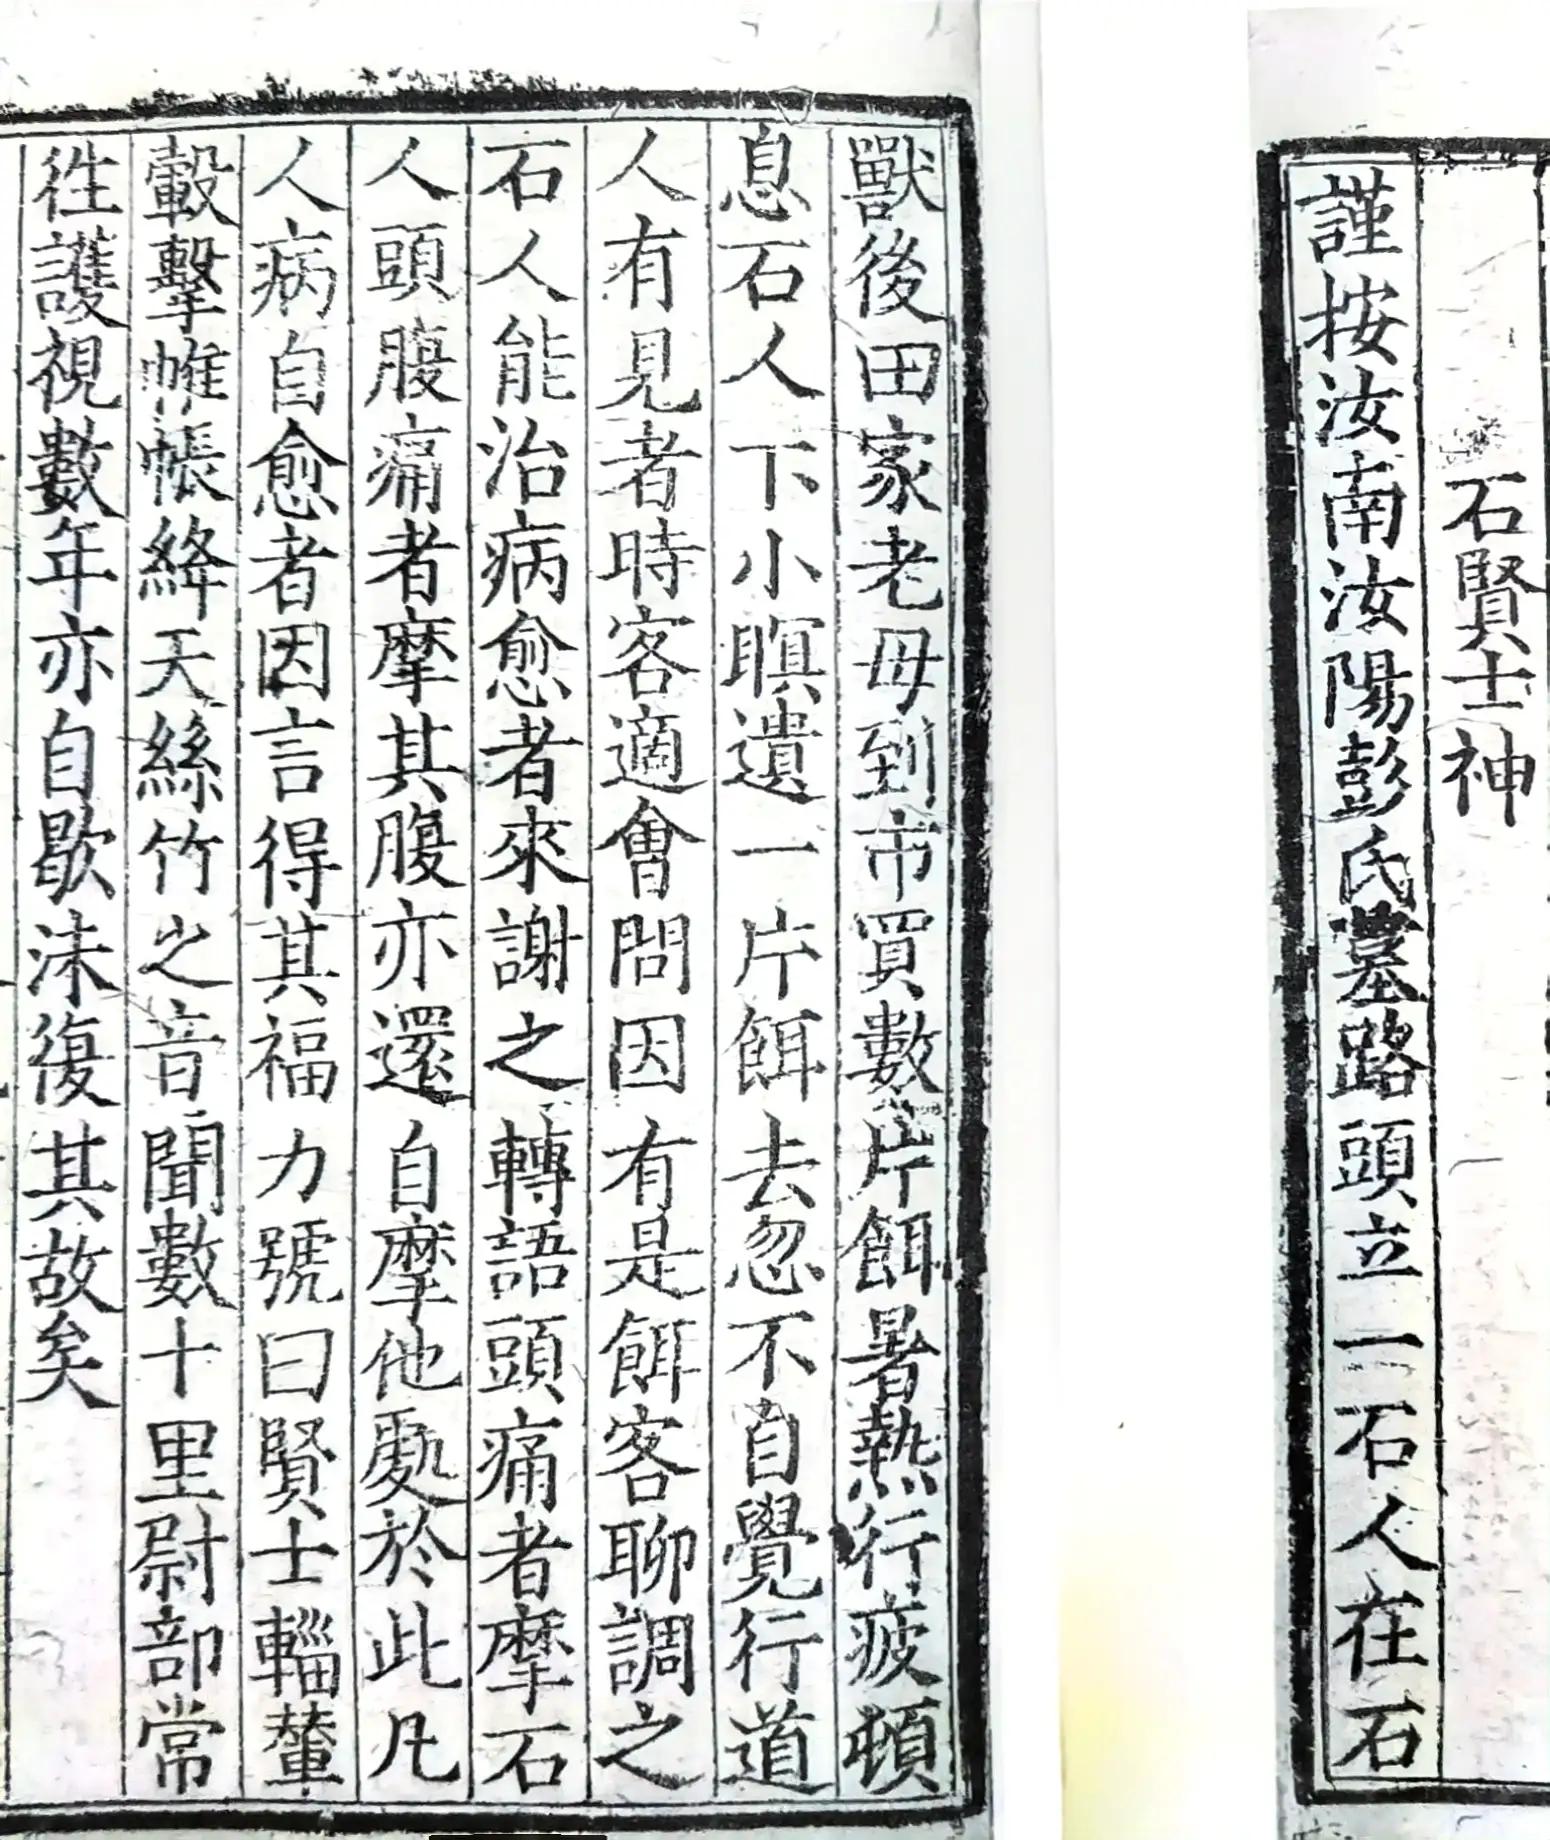 石賢士神
謹按汝南汝陽彭氏墓路頭立一石人在石
獸後田家老母到市買數片餌暑熱行疲頓
息石人下小瞑遺一片餌去忽不自覺行道
人有見者時客適會問因有是餌客聊調之
石人能治病愈者來謝之轉語頭痛者摩石
人頭腹痛者摩其腹亦還自摩他處於此凡
人病自愈者因言得其福力號曰賢士輜輦
轂擊帷帳絳天絲竹之音聞數十里尉部常
往護視數年亦自歇沫復其故矣